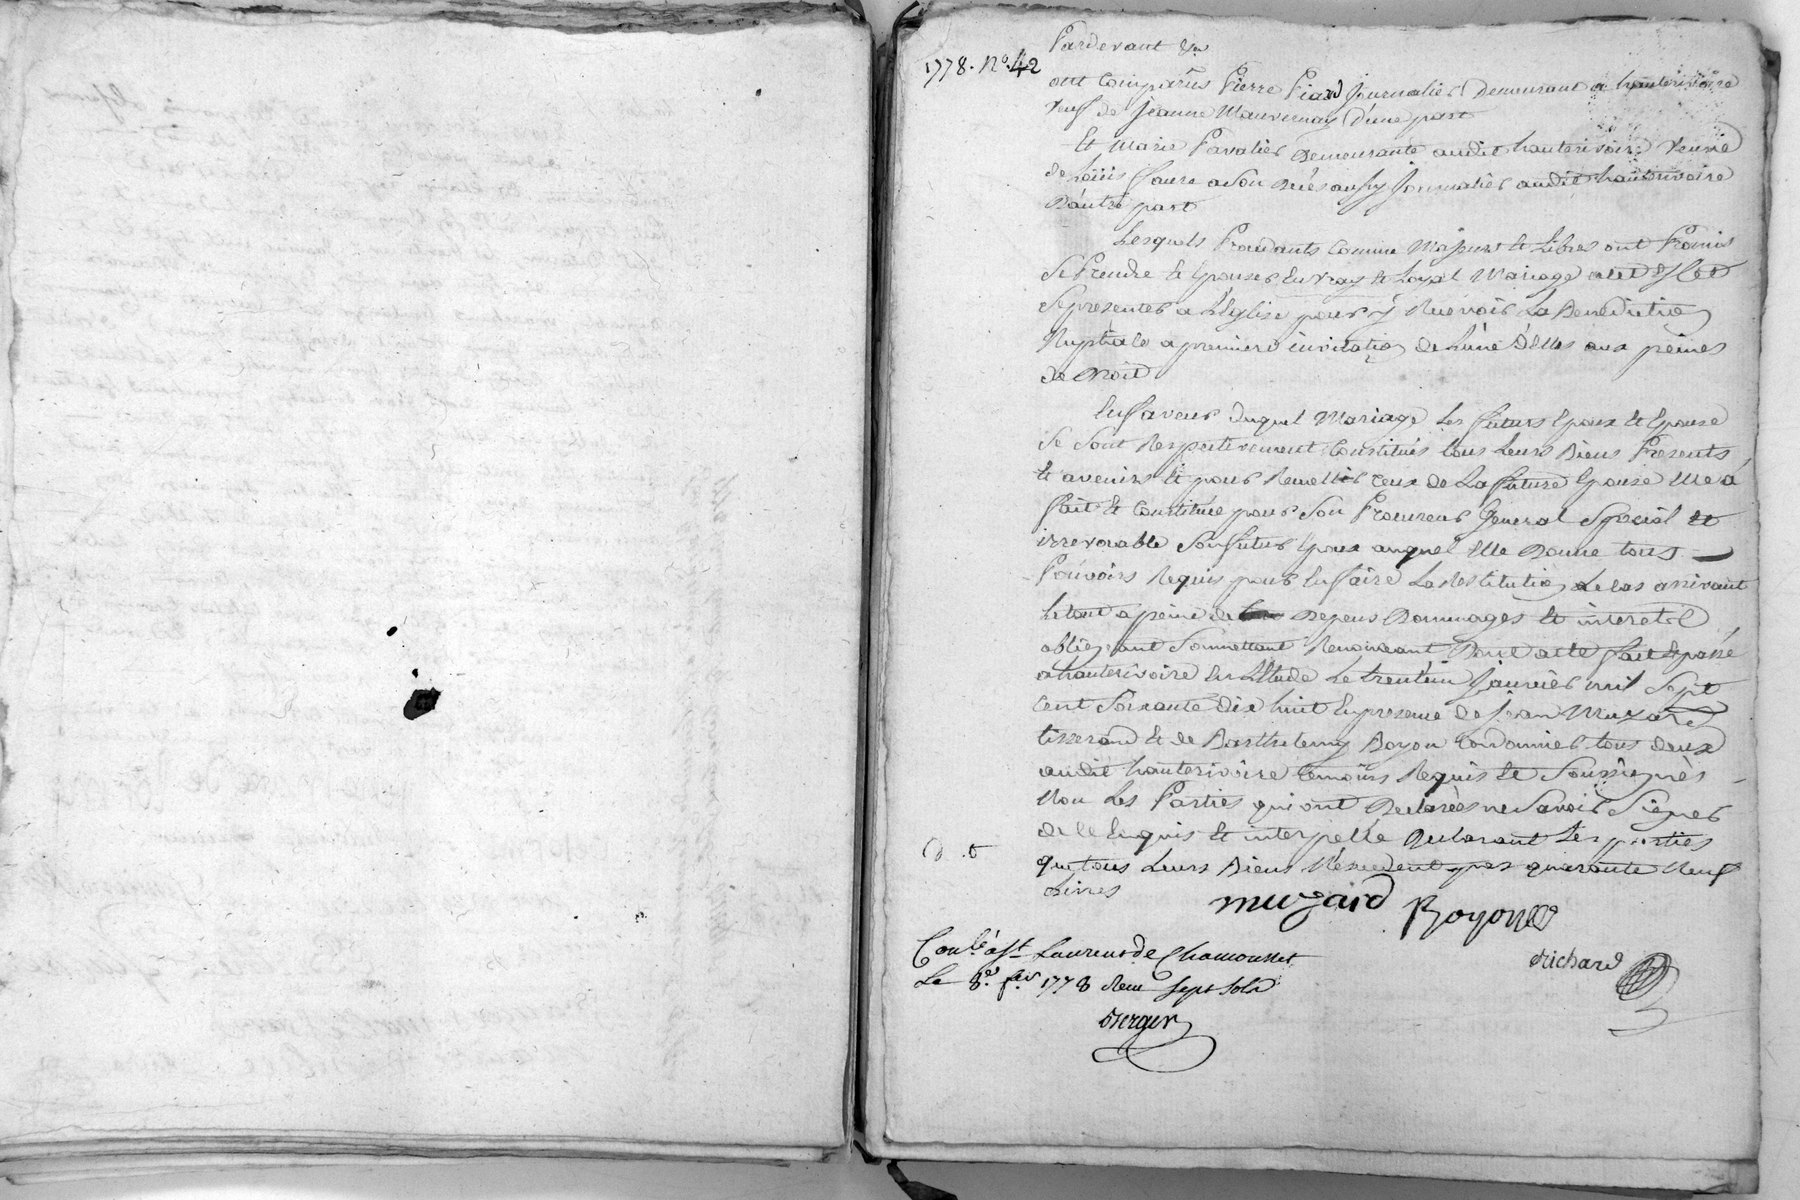 1778. N.° 42
Pardevant &a
ont Comparus Pierre Piard Journalier Demeurant a hauterivoire
veuf de Jeanne Mauvernay D'une part
Et Marie Pavalier Demeurante audit hauterivoire veuve
de Loüis faure a son vivés aussy Journalier audit hauterivoire
D'autre part
Lesquels Procedants Comme Majeurs et Libres ont Promis
se Prendre et Epouser En vray et Loyal Mariage
se presenter a L'Eglise pour y Recevoir La Benediction
Nuptiale a premiere invitation de L'une d'Elles aux peines
de Droit
En faveur duquel Mariage Les futurs Epoux et Epouse
se sont Respectivement Constitués tous Leurs Biens Presents
et avenirs et pour Recueillir ceux de La future Epouse Elle a
fait et Constitüé pour son Procureur General special et
irrevocable son futur Epoux auquel Elle Donne tous
Pouvoirs Requis pour En faire La Restitution Le cas arrivant
Le tout a peine de Depens Dommages et interets
obligeant soumettant Renonceant Dont acte fait et passé
a hauterivoire En L'Etude Le trentein Janvier mil sept
cent soixante dix huit En presence de Jean Muzard
tisserand et de Barthelemy Boyon Cordonnier tous deux
audit hauterivoire temoins Requis et soussignés
Non Les Parties qui ont Declarées ne savoir signer
de ce Enquis et interpellé Declarant Les parties
que tous Leurs Biens N'excedent pas quarante Neuf
Livres
muzard Boyon
Richard
Con.lé a St Laurens de Chamousset
Le 8.e fev.r 1778 Reçu sept sols
Berger